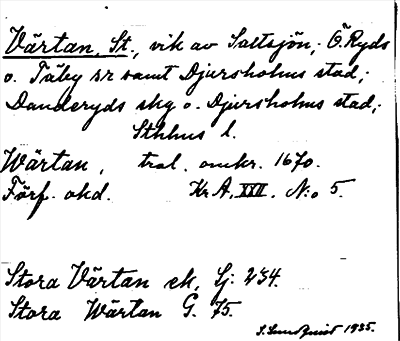 Värtan, St., vik av Saltsjön; Ö. Ryds
o. Täby srr samt Djursholms stad;
Danderyds skg o. Djursholms stad;
Sthlms l.
Wärtan, tral. omkr. 1670.
Förf. okd. Kr A, XXII. N:o 5.
Stora Värtan ek. Sj: 234.
Stora Wärtan G. 75.
S. Lundquist 1935.